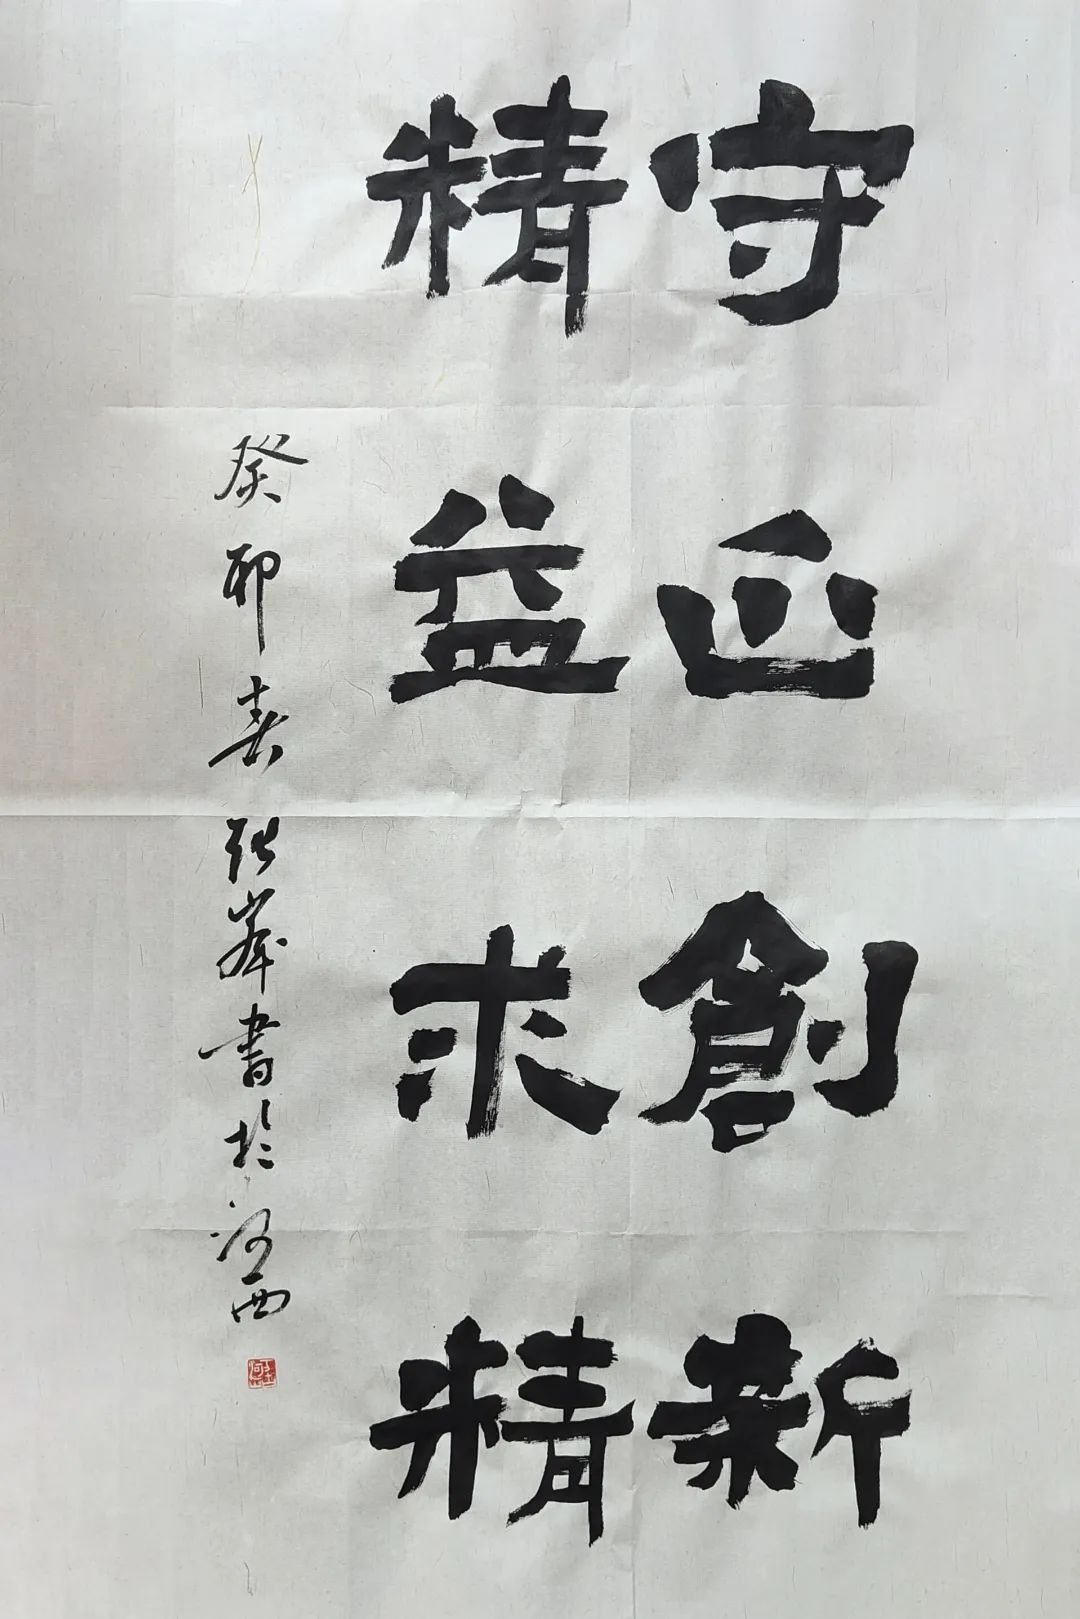 守正創新
精益求精
癸卯春張峯書於河西